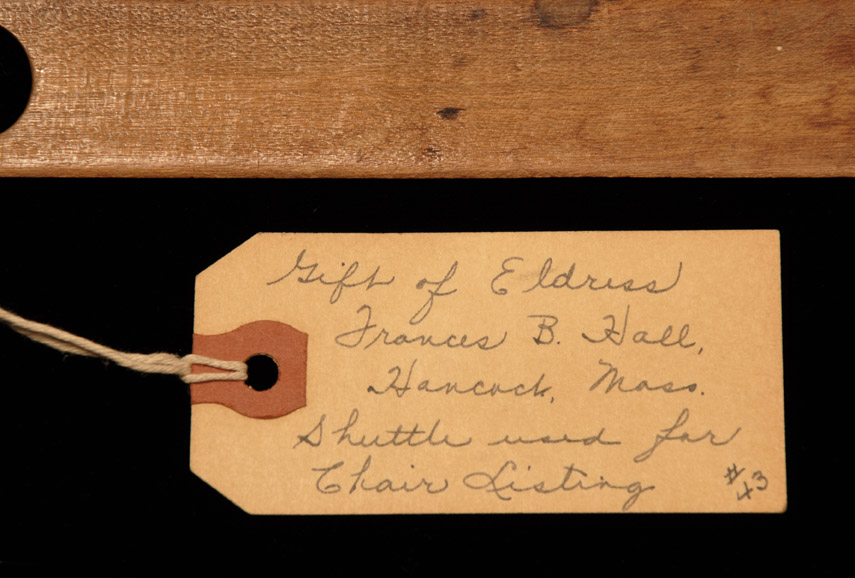 Gift of Eldress
Frances B. Hall,
Hancock, Mass.
Shuttle used for
Chair Listing
#43